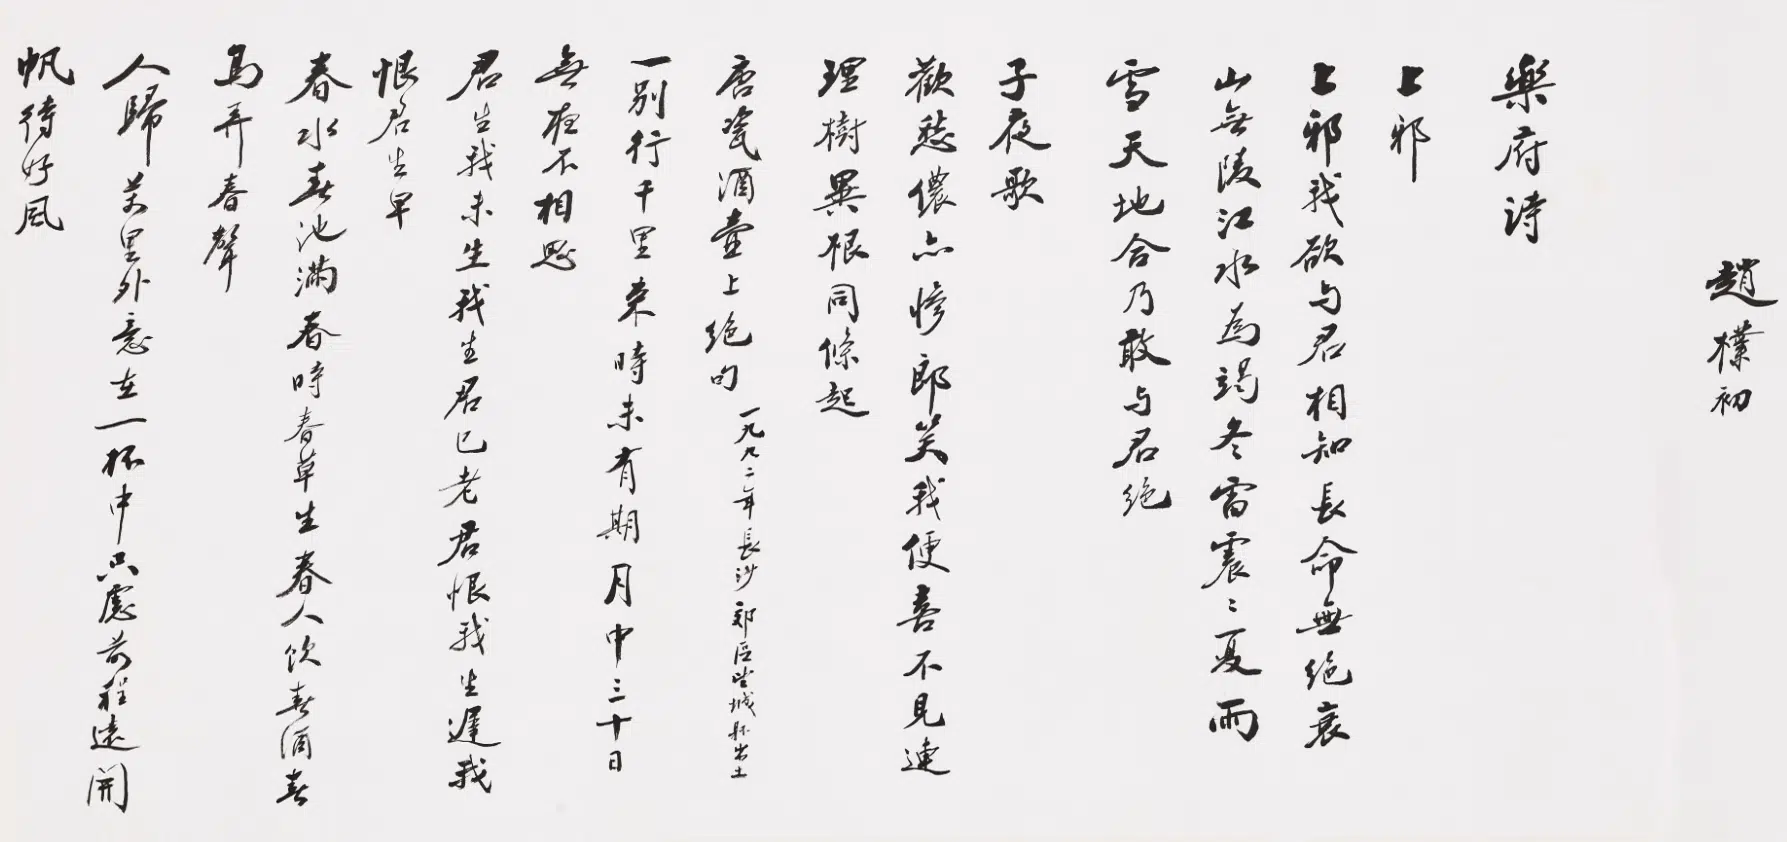 趙樸初
樂府詩
上邪
上邪我欲与君相知長命無絶衰
山無陵江水為竭冬雷震〻夏雨
雪天地合乃敢与君絶
子夜歌
歡愁儂亦惨郎笑我便喜不見連
理樹異根同條起
唐瓷酒壺上絶句 一九九二年長沙郊区望城縣出土
一别行千里来時未有期月中三十日
無夜不相思
君生我未生我生君已老君恨我生遲我
恨君生早
春水春池滿春時春草生春人飲春酒春
鳥弄春聲
人歸萬里外意在一杯中只慮前程遠開
帆待好風